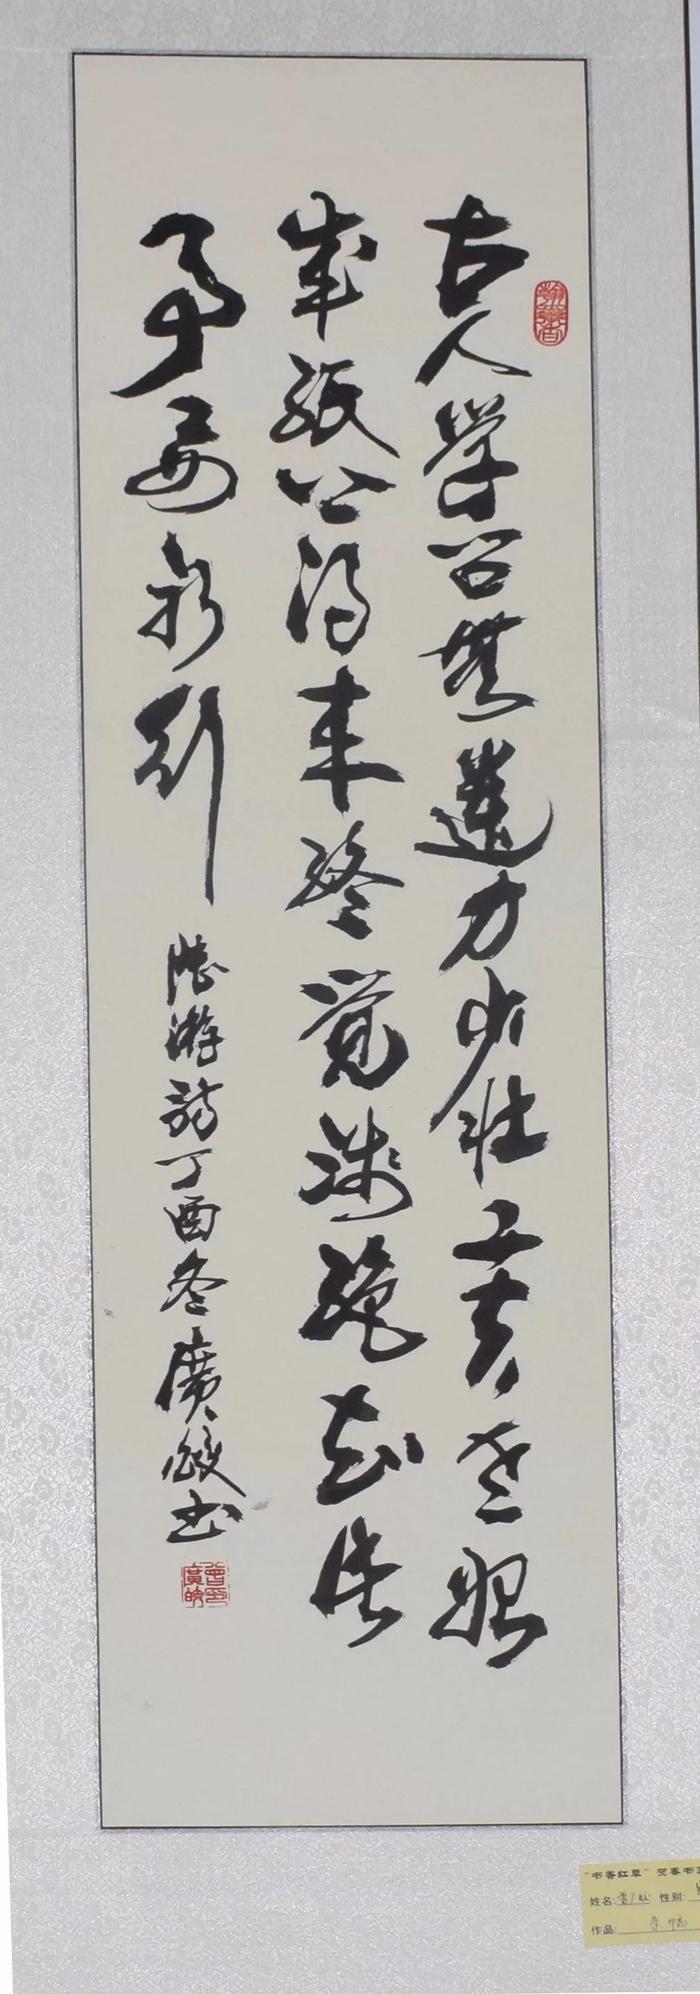 古人学问无遗力少壮工夫老始
成纸上得来终觉浅绝知此
事要躬行
陆游诗丁酉冬廣皎书
曾印廣皎
"书香红草"
姓名: 性别:
作品: